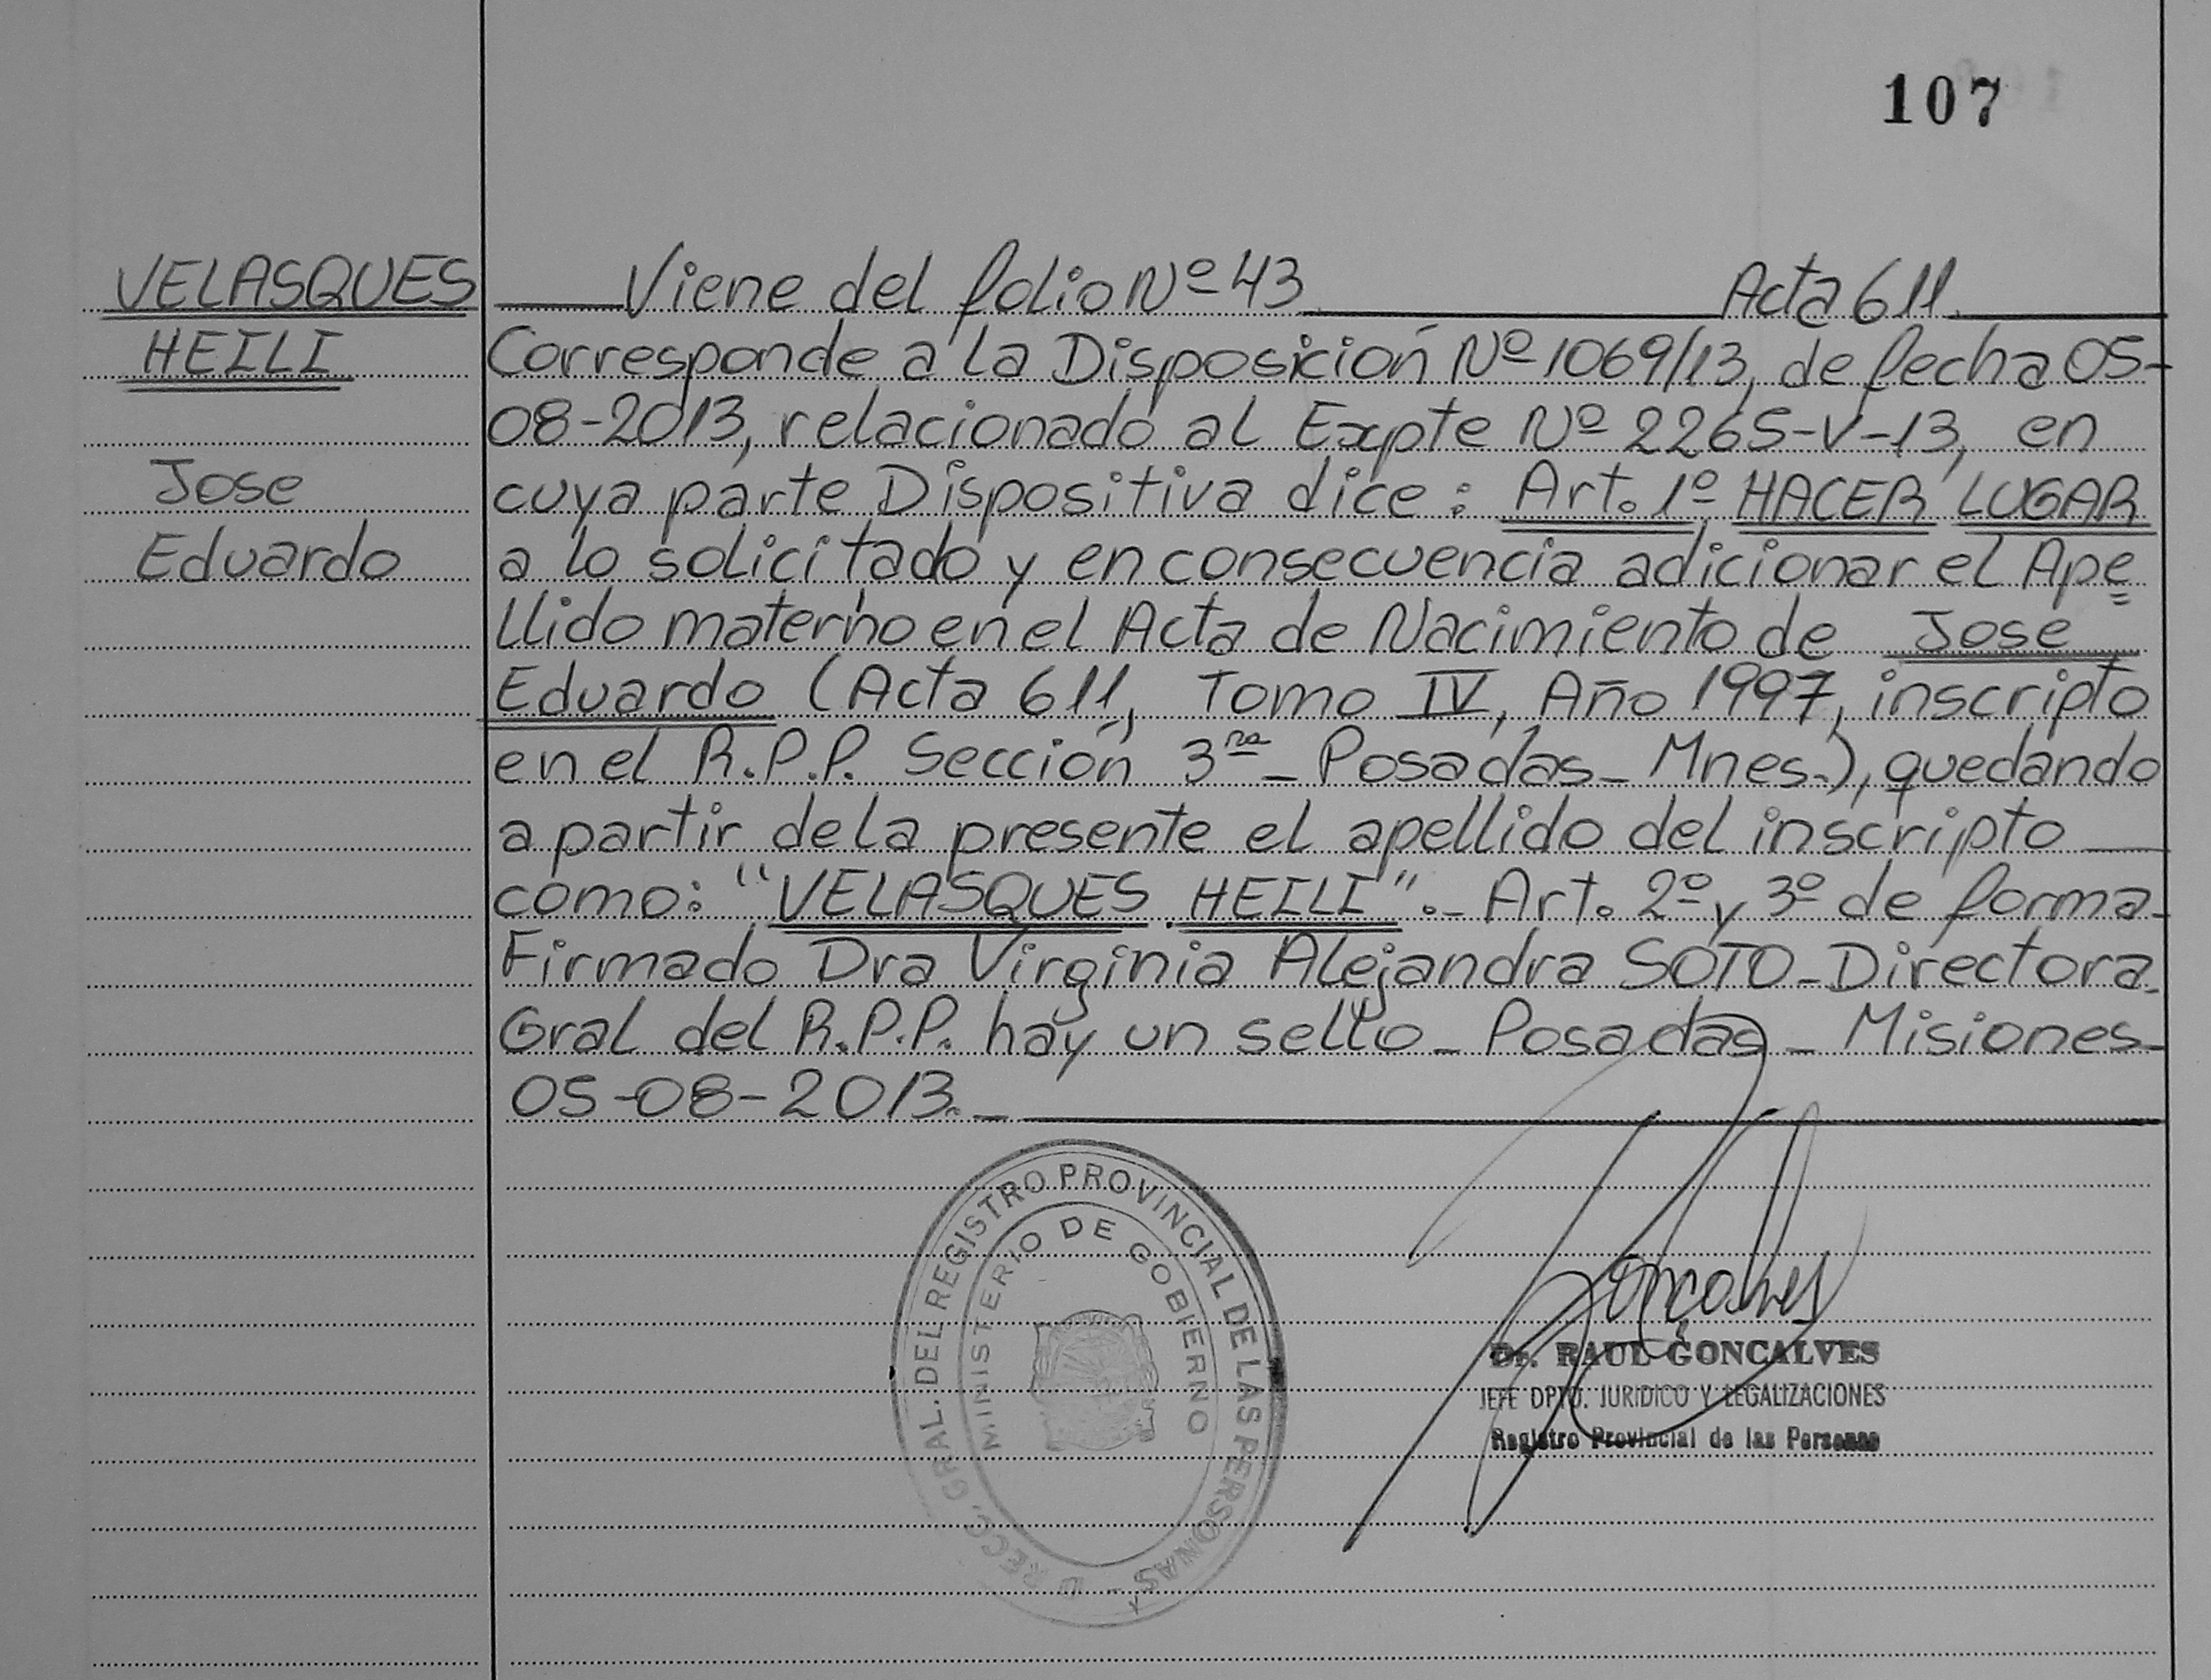 107
VELASQUES
HEILI
Jose
Eduardo
Viene del folio Nº 43 Acta 611
Corresponde a la Disposición Nº 1069/13, de fecha 05-
08-2013, relacionado al Expte Nº 2265-V-13, en
cuya parte Dispositiva dice: Art. 1º HACER LUGAR
a lo solicitado y en consecuencia adicionar el Ape
llido materno en el Acta de Nacimiento de Jose
Eduardo (Acta 611, Tomo IV, Año 1997, inscripto
en el R.P.P. Sección 3ra_ Posadas_ Mnes.), quedando
a partir de la presente el apellido del inscripto
como: "VELASQUES HEILI"._ Art. 2º y 3º de forma_
Firmado Dra Virginia Alejandra SOTO_ Directora_
Gral del R.P.P. hay un sello_ Posadas_ Misiones_
05-08-2013._
DIRECC. GRAL. DEL REGISTRO PROVINCIAL DE LAS PERSONAS
MINISTERIO DE GOBIERNO
Goncalves
Dr. RAUL GONCALVES
JEFE DPTO. JURIDICO Y LEGALIZACIONES
Registro Provincial de las Personas